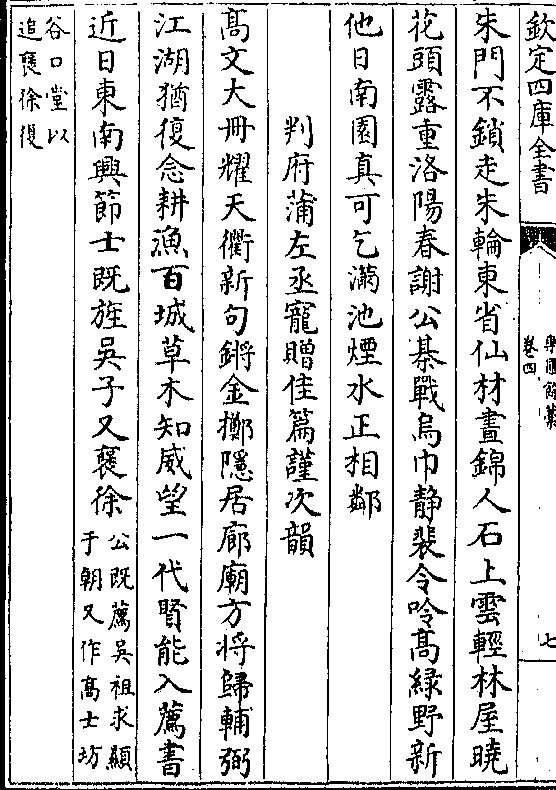 欽定四庫全書
樂圃餘藁
卷四
七
朱門不鎖走朱輪東省仙材晝錦人石上雲輕林屋曉
花頭露重洛陽春謝公棊戰烏巾静裴令吟髙綠野新
他日南園真可乞滿池煙水正相鄰
判府蒲左丞寵贈佳篇謹次韻
髙文大冊耀天衢新句鏘金擲隱居廊廟方将歸輔弼
江湖猶復念耕漁百城草木知威望一代賢能入薦書
近日東南興節士既旌吳子又襃徐公既薦吳祖求顯
于朝又作髙士坊
谷口堂以
追襃徐復